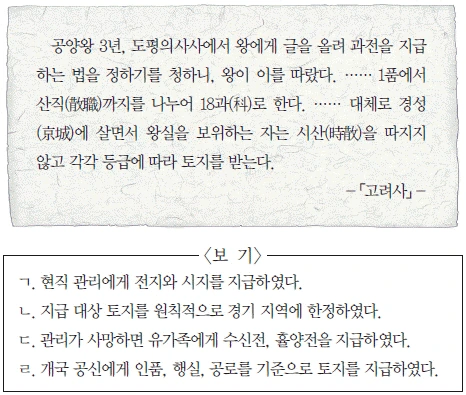 공양왕 3년, 도평의사사에서 왕에게 글을 올려 과전을 지급
하는 법을 정하기를 청하니, 왕이 이를 따랐다. …… 1품에서
산직(散職)까지를 나누어 18과(科)로 한다. …… 대체로 경성
(京城)에 살면서 왕실을 보위하는 자는 시산(時散)을 따지지
않고 각각 등급에 따라 토지를 받는다.
-「고려사」-
〈보 기〉
ㄱ. 현직 관리에게 전지와 시지를 지급하였다.
ㄴ. 지급 대상 토지를 원칙적으로 경기 지역에 한정하였다.
ㄷ. 관리가 사망하면 유가족에게 수신전, 휼양전을 지급하였다.
ㄹ. 개국 공신에게 인품, 행실, 공로를 기준으로 토지를 지급하였다.